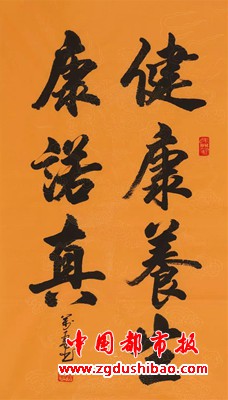 健康養生
康諾真
中国都市报
www.zgdushibao.com